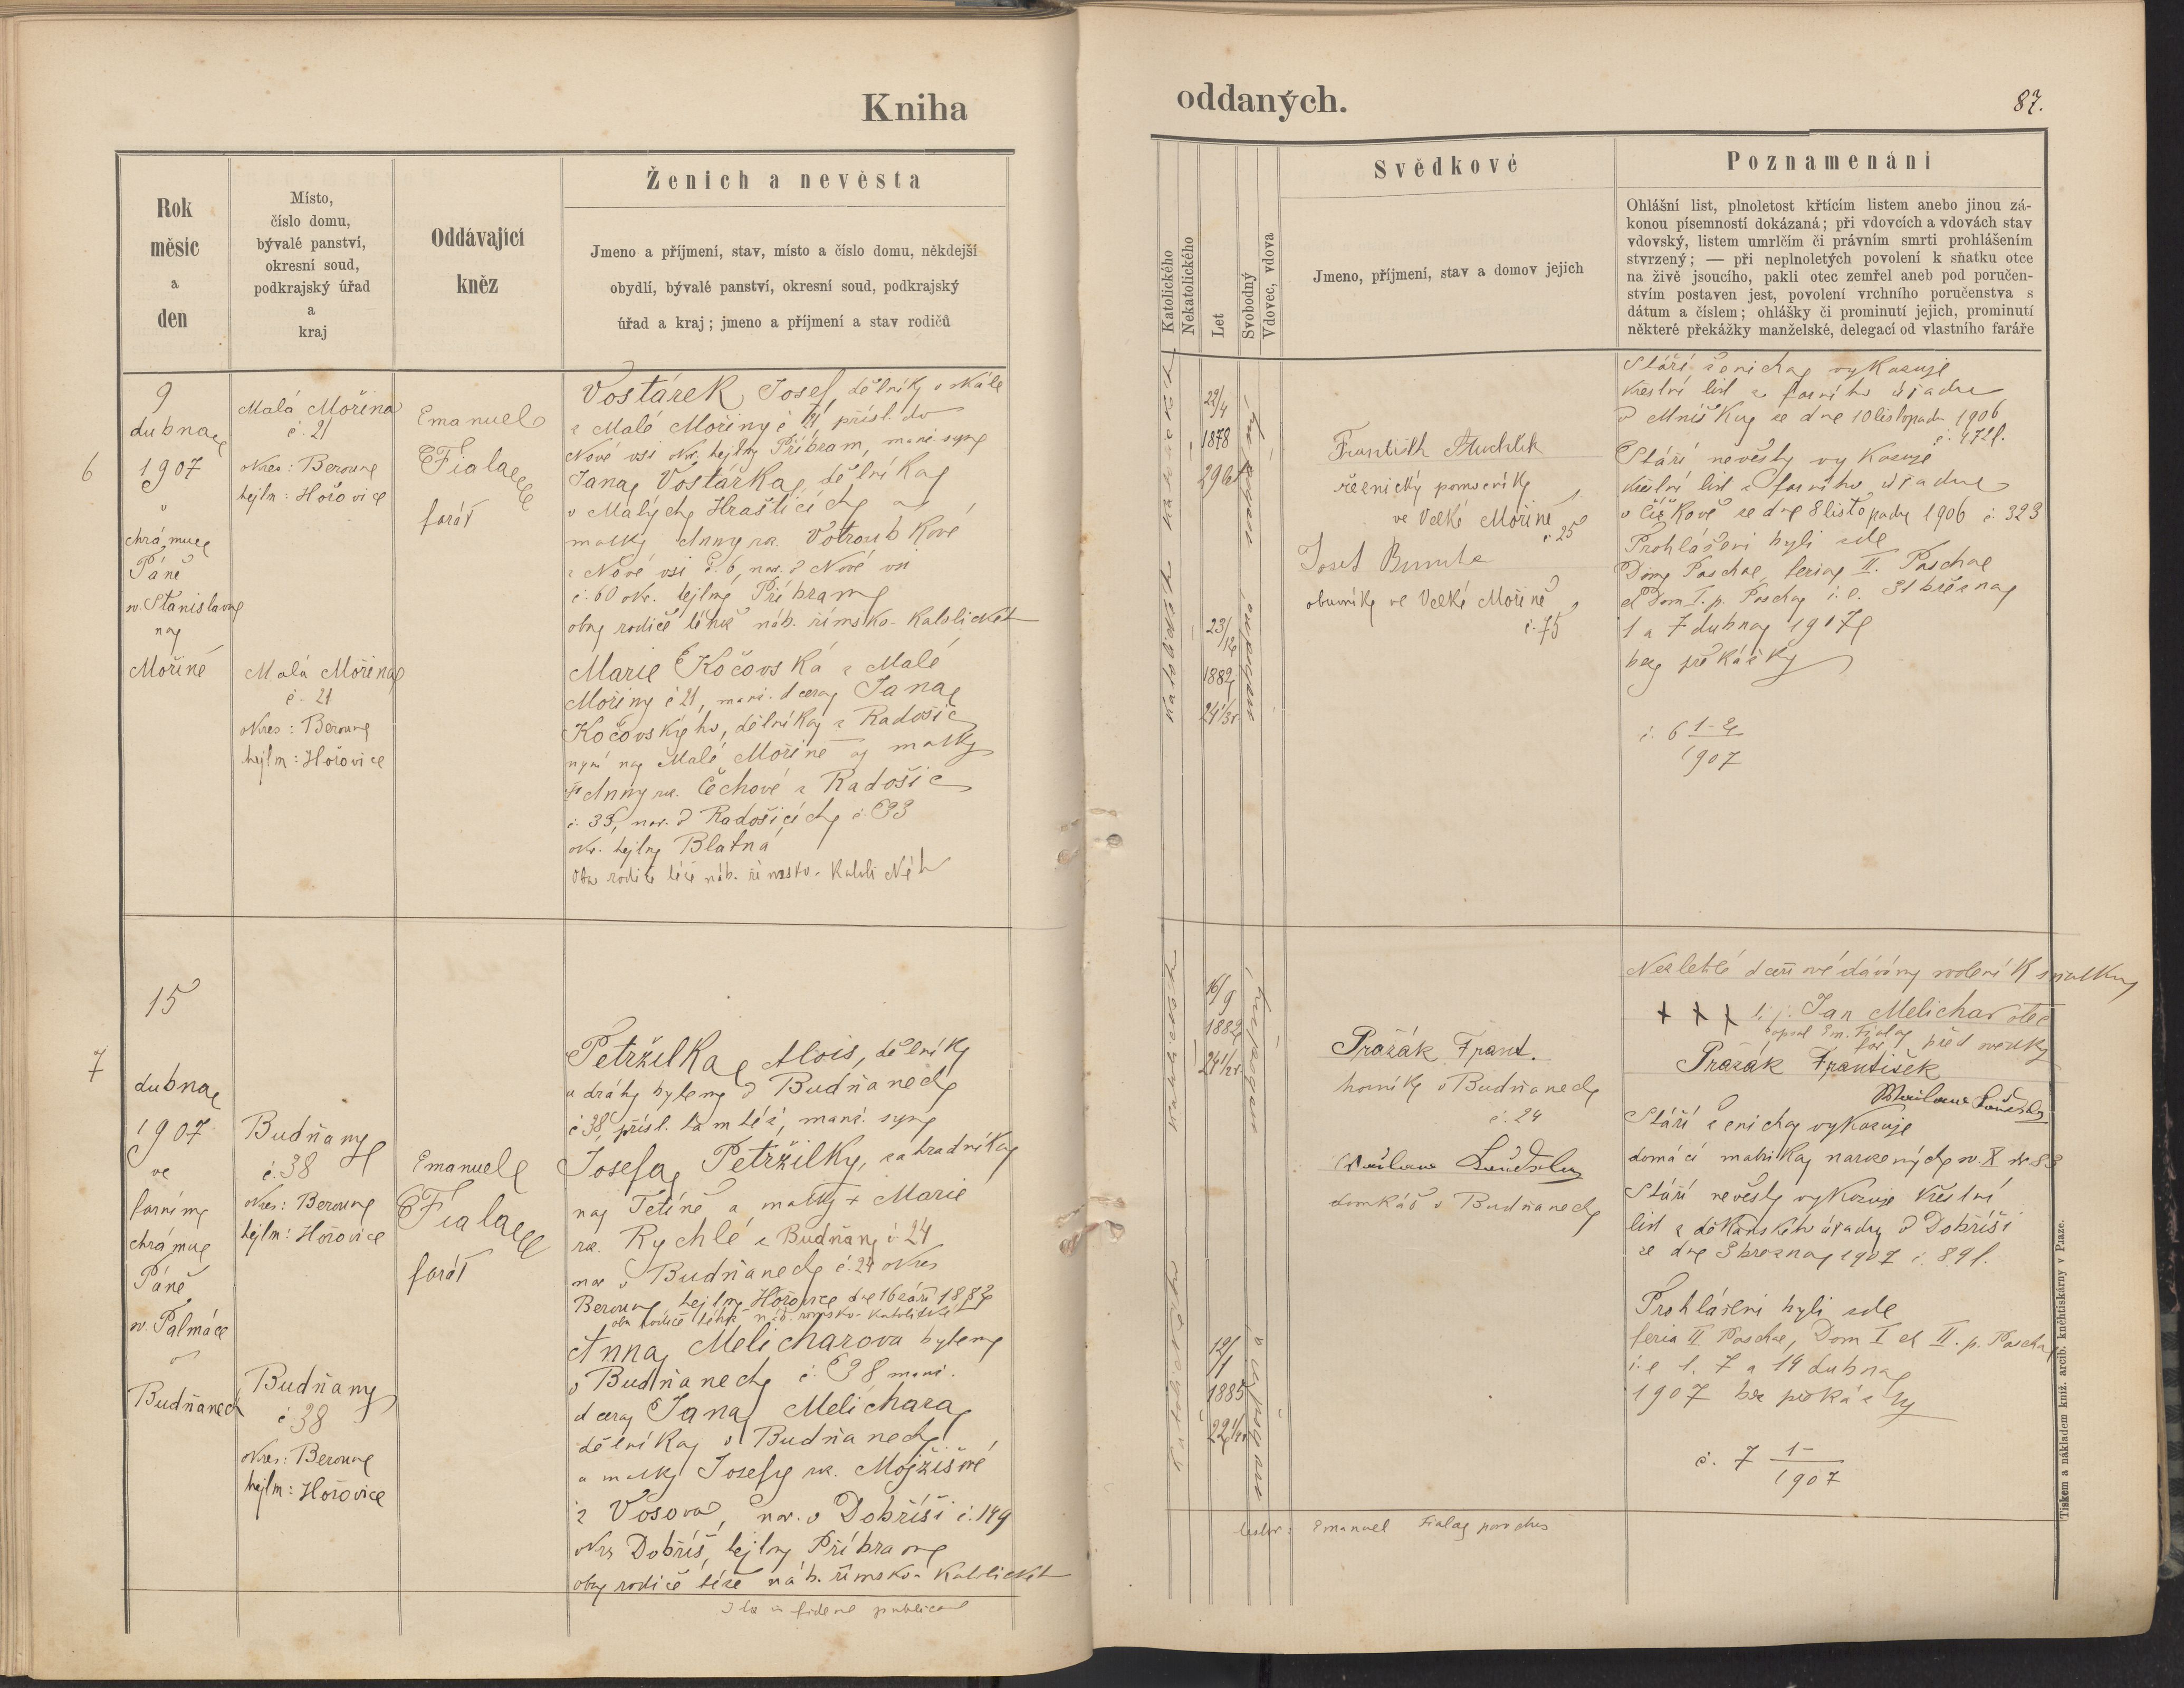 Kniha
oddaných.
87.
Rok
měsíc
a
den
Místo,
číslo domu,
bývalé panství,
okresní soud,
podkrajský úřad
a
kraj
Oddávající
kněz
Ženich a nevěsta
Jmeno a příjmení, stav, místo a číslo domu, někdejší
obydlí, bývalé panství, okresní soud, podkrajský
úřad a kraj; jmeno a příjmení a stav rodičů
Katolického
Nekatolického
Let
Svobodný
Vdovec, vdova
Svědkové
Jmeno, příjmení, stav a domov jejich
Poznamenáni
Ohlášní list, plnoletost křtícím listem anebo jinou zá-
konou písemností dokázaná; při vdovcích a vdovách stav
vdovský, listem umrlčím či právním smrti prohlášením
stvrzený; — při neplnoletých povolení k sňatku otce
na živě jsoucího, pakli otec zemřel aneb pod poručen-
stvím postaven jest, povolení vrchního poručenstva s
dátum a číslem; ohlášky či prominutí jejich, prominutí
některé překážky manželské, delegací od vlastního faráře
6
9
dubna
1907
v
chrámu
Páně
sv. Stanislava
na
Mořině
Malá Mořina
č. 21
okres: Beroun
hejtm: Hořovice
Malá Mořina
č. 21
okres: Beroun
hejtm: Hořovice
Emanuel
Fiala
farář
Vostárek Josef, dělník v skále
z Malé Mořiny č 21, přísl. do
Nové vsi okr. hejtm Příbram, manž. syn
Jana Vostárka, dělníka
v Malých Hrašticích a
matky Anny roz. Votroubkové
z Nové vsi č. 6, nar. v Nové vsi
č. 60 okr. hejtm Příbram
oba rodiče téhož náb. římsko-katolickéh
Marie Kočovská z Malé
Mořiny č 21, manž. dcera Jana
Kočovského, dělníka z Radošic
nyní na Malé Mořině a matky
Anny roz. Čechové z Radošic
č. 33, nar. v Radošicích č. 33
okr. hejtm Blatná
oba rodiče téže náb. římsko-katolickéh
katolické
katolické
22/4
1878
29 let
23/12
1882
24 1/3 r.
František
řeznický pomocník
ve Velké Mořině
č 25
Josef
obuvník ve Velké Mořině
č. 75
Stáří ženicha vykazuje
křestní list z farního úřadu
v Mníšku ze dne 10 listopadu 1906
č. 472.
Stáří nevěsty vykazuje
křestní list z farního úřadu
v Čížkově ze dne 8 listopadu 1906 č. 323
Prohlášeni byli zde
Dom Paschae, feria II. Paschae
et Dom I. p. Pascha i. e. 31 března
1 a 7 dubna 1907
bez překážky
č. 6 1-2
1907
7
15
dubna
1907
ve
farním
chrámu
Páně
sv. Palmáce
v
Budňanech
Budňany
č. 38
okres: Beroun
hejtm: Hořovice
Budňany
č 38
okres: Beroun
hejtm: Hořovice
Emanuel
Fiala
farář
Petržilka Alois, dělník
u dráhy bytem v Budňanech
č 38, přísl. tamtéž, manž. syn
Josefa Petržilky, zahradníka
na Tetíně a matky + Marie
roz. Rychlé z Budňan č 24
nar v Budňanech č. 24 okres
Beroun hejtm Hořovice dne 16 září 1882
oba rodiče téhož náb. římsko-katolické
Anna Melicharova bytem
v Budňanech č. 38 manž.
dcera Jana Melichara
dělníka v Budňanech
a matky Josefy roz. Mojžišové
z Vosova, nar. v Dobříši č. 149
okres Dobříš, hejtm Příbram
oba rodiče téže náb. římsko-katolickéh
Ita in fidem publicam
16/9
1882
24 1/2 r.
12/1
1885
22 1/4 r
Pražák Frant.
horník v Budňanech
č. 24
domkář v Budňanech
testor: Emanuel Fiala parochus
Nezletilé dceři své dávám svolení k sňatku
+ + + t. j. Jan Melichar otec
popsal Em. Fiala far. před svědky
Pražák František
Stáří ženicha vykazuje
domácí matrika narozených sv. X str 83
Stáří nevěsty vykazuje křestní
list z děkanského úřadu v Dobříši
ze dne 3 března 1907 č. 891.
Prohlášeni byli zde
feria II Paschae, Dom I et II. p. Pascha
i. e 1. 7 a 14 dubna
1907 bez překážky
č. 7 1-
1907
Tiskem a nákladem kníž. arcib. knéhtiskárny v Praze.